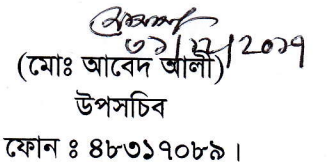 ৩১/১২/২০১৭
(মোঃ আবেদ আলী)
উপসচিব
ফোন ঃ ৪৮৩১৭০৮৯।